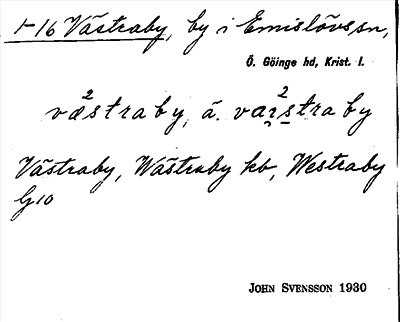 1-16 Västraby, by i Emislövs sn,
Ö. Göinge hd, Krist. l.
væ²straby, ä. vaı̯²s̱traby
Västraby, Wästraby kb, Westraby
G10
JOHN SVENSSON 1930